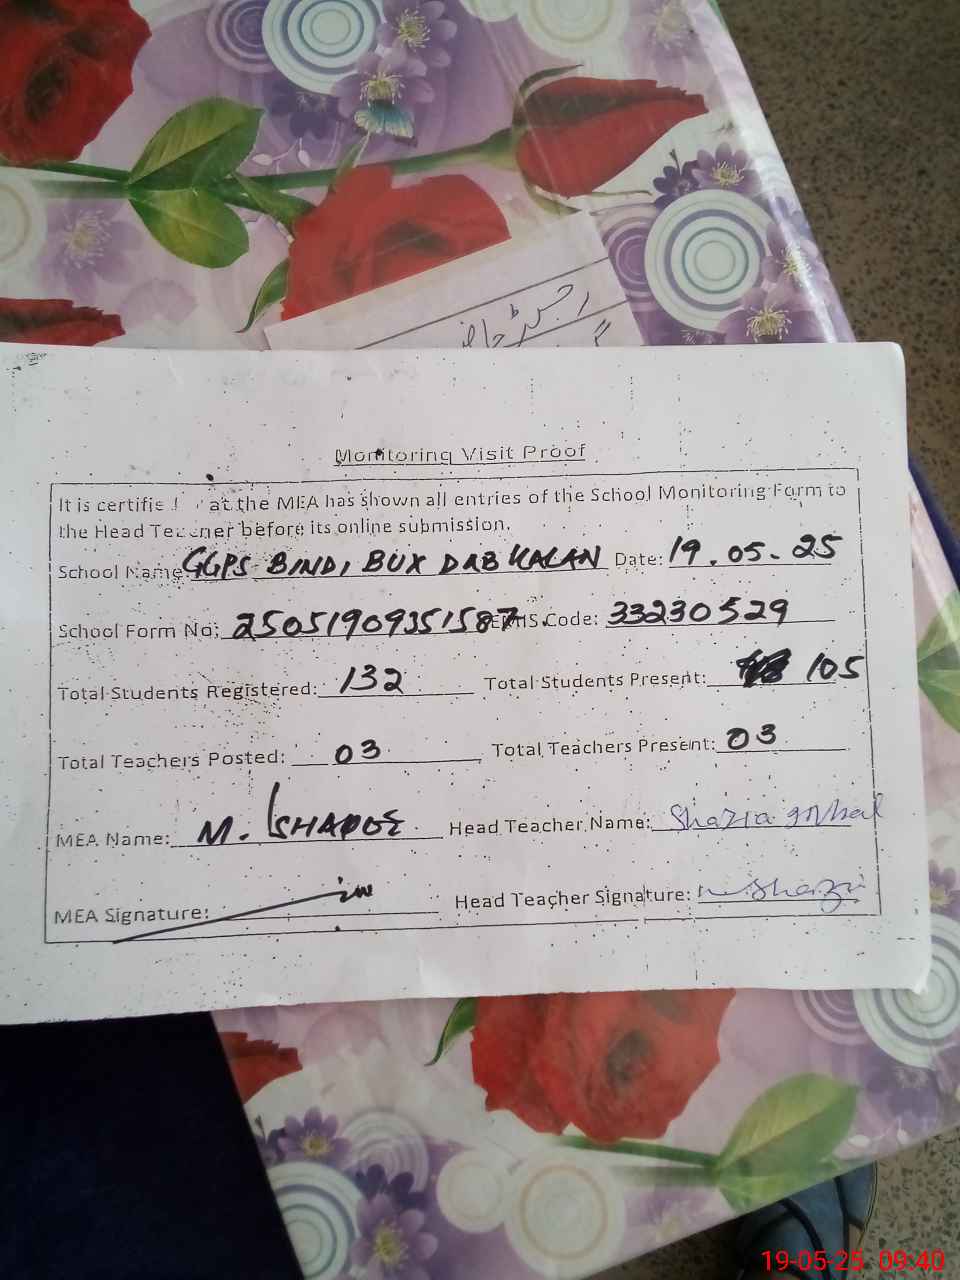 رجسٹر حاضر
Monitoring Visit Proof
It is certified at the MEA has shown all entries of the School Monitoring Form to
the Head Teacher before its online submission.
School Name: GGPS BINDI BUX DAB KALAN Date: 19.05-25
School Form No: 25051909351587. EMIS Code: 33230529
Total Students Registered: 132 Total Students Present: 105
Total Teachers Posted: 03 Total Teachers Present: 03
MEA Name: M. Head Teacher Name: Shazia
MEA Signature: Head Teacher Signature: Shazi
19-05-25 09:40